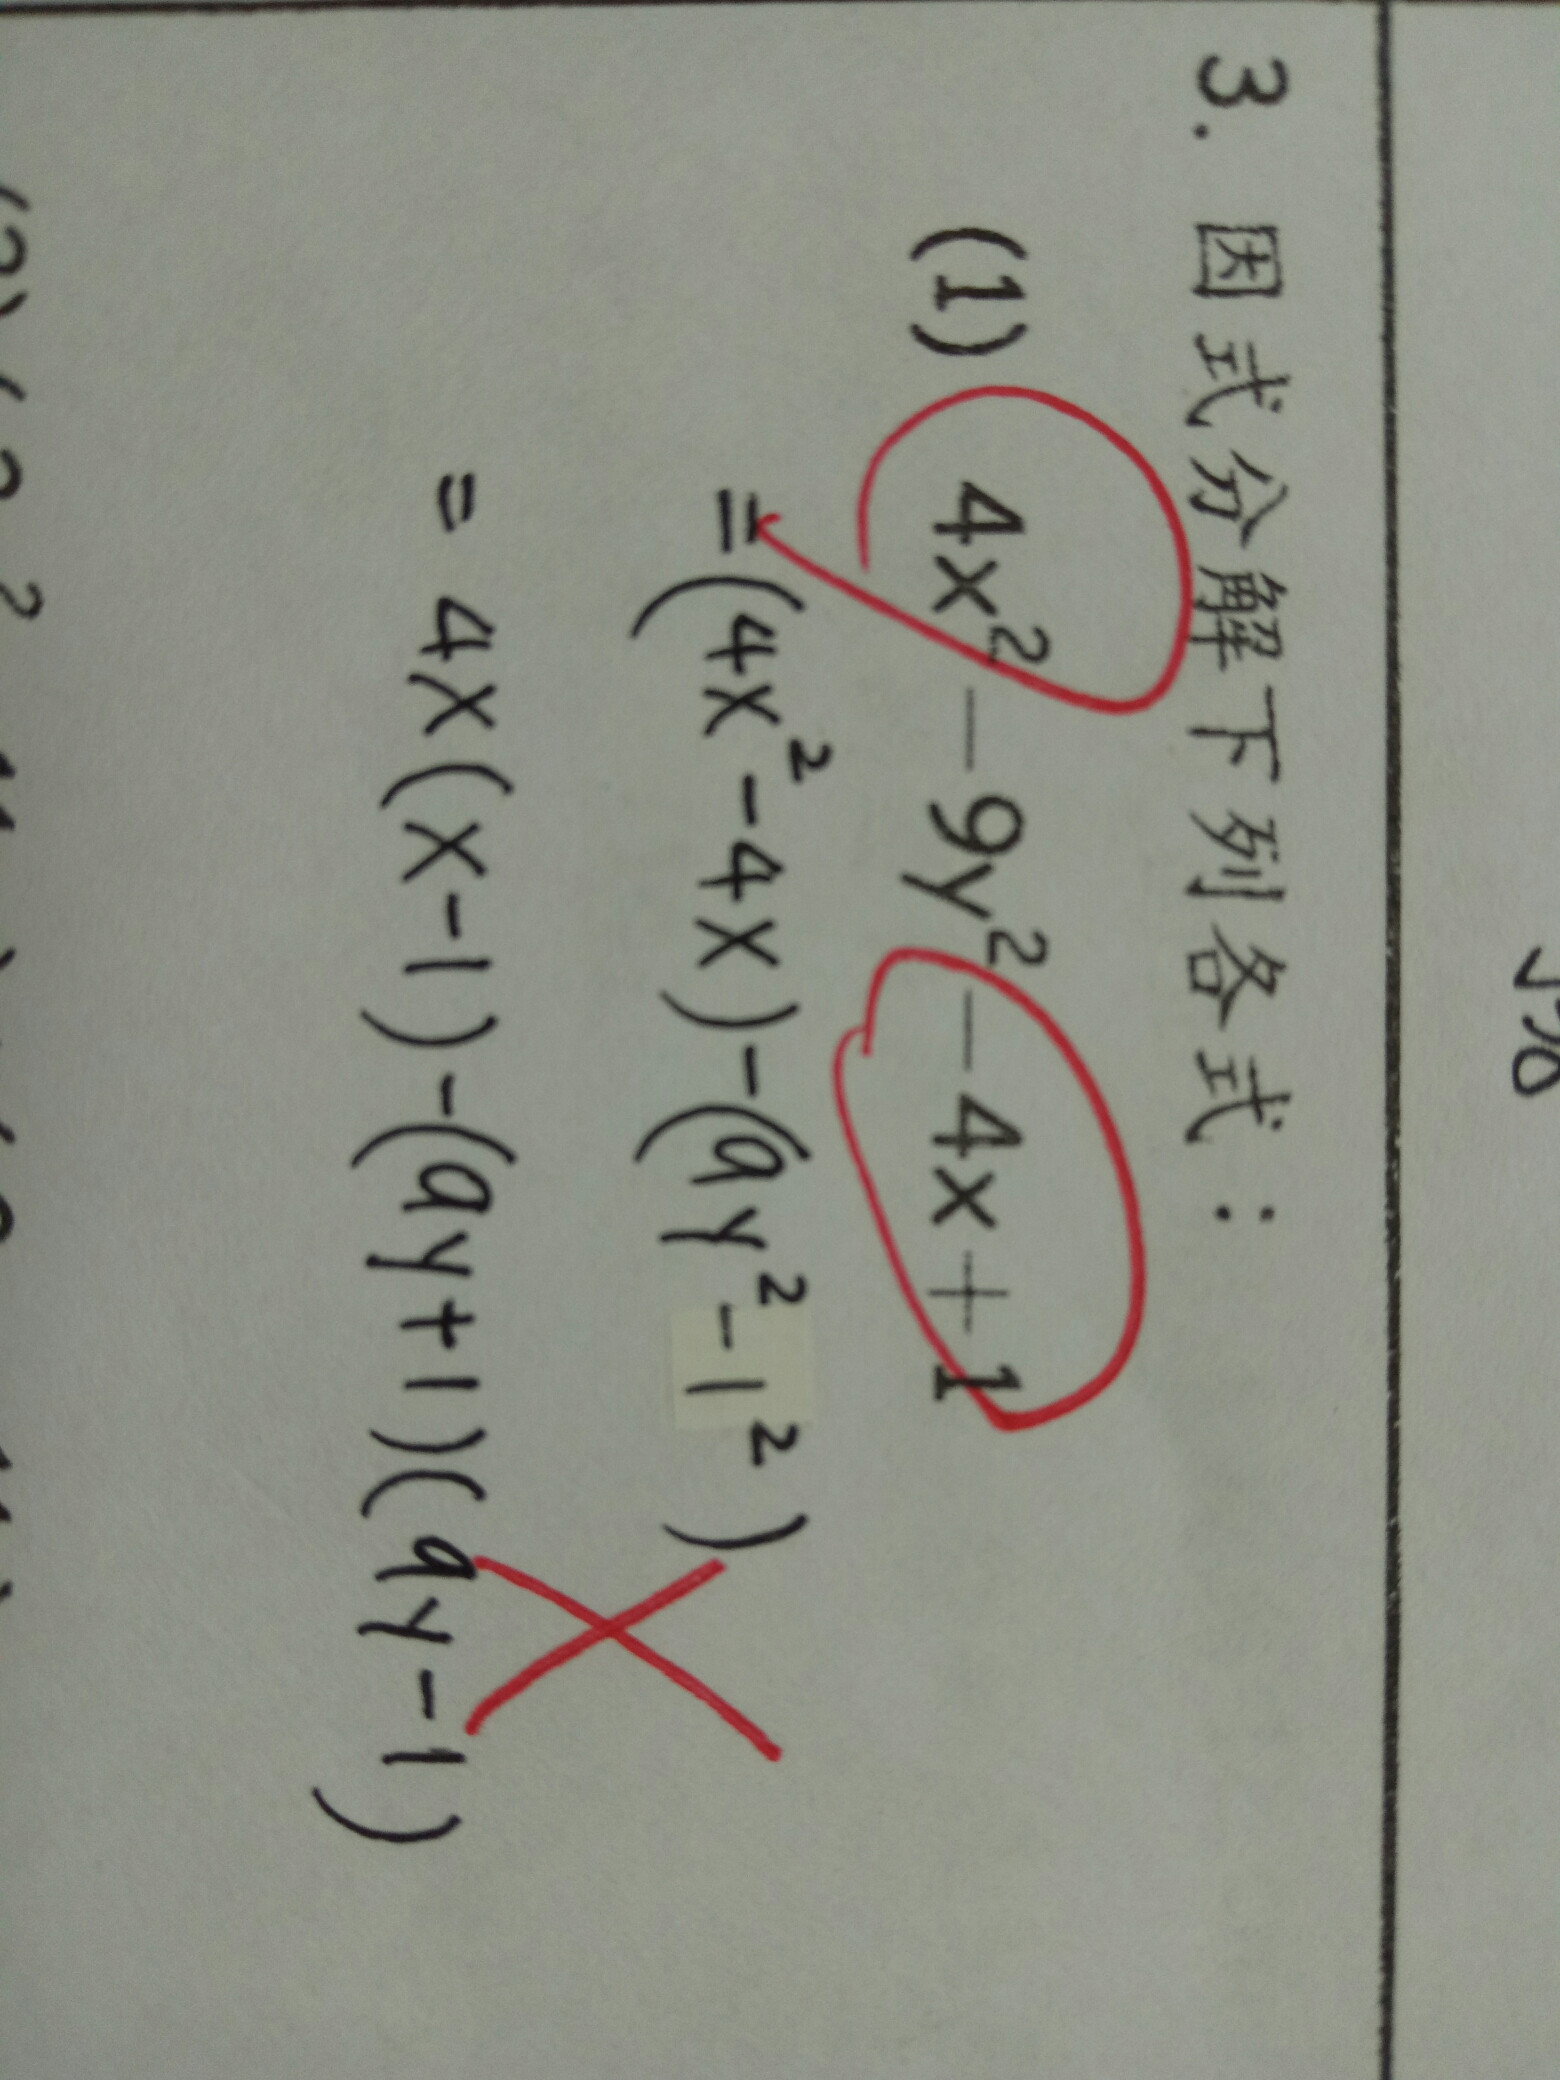 3. 因式分解下列各式：
(1) 4x² − 9y² − 4x + 1
= (4x² - 4x) - (9y² - 1²)
= 4x(x-1) - (9y+1)(9y-1)